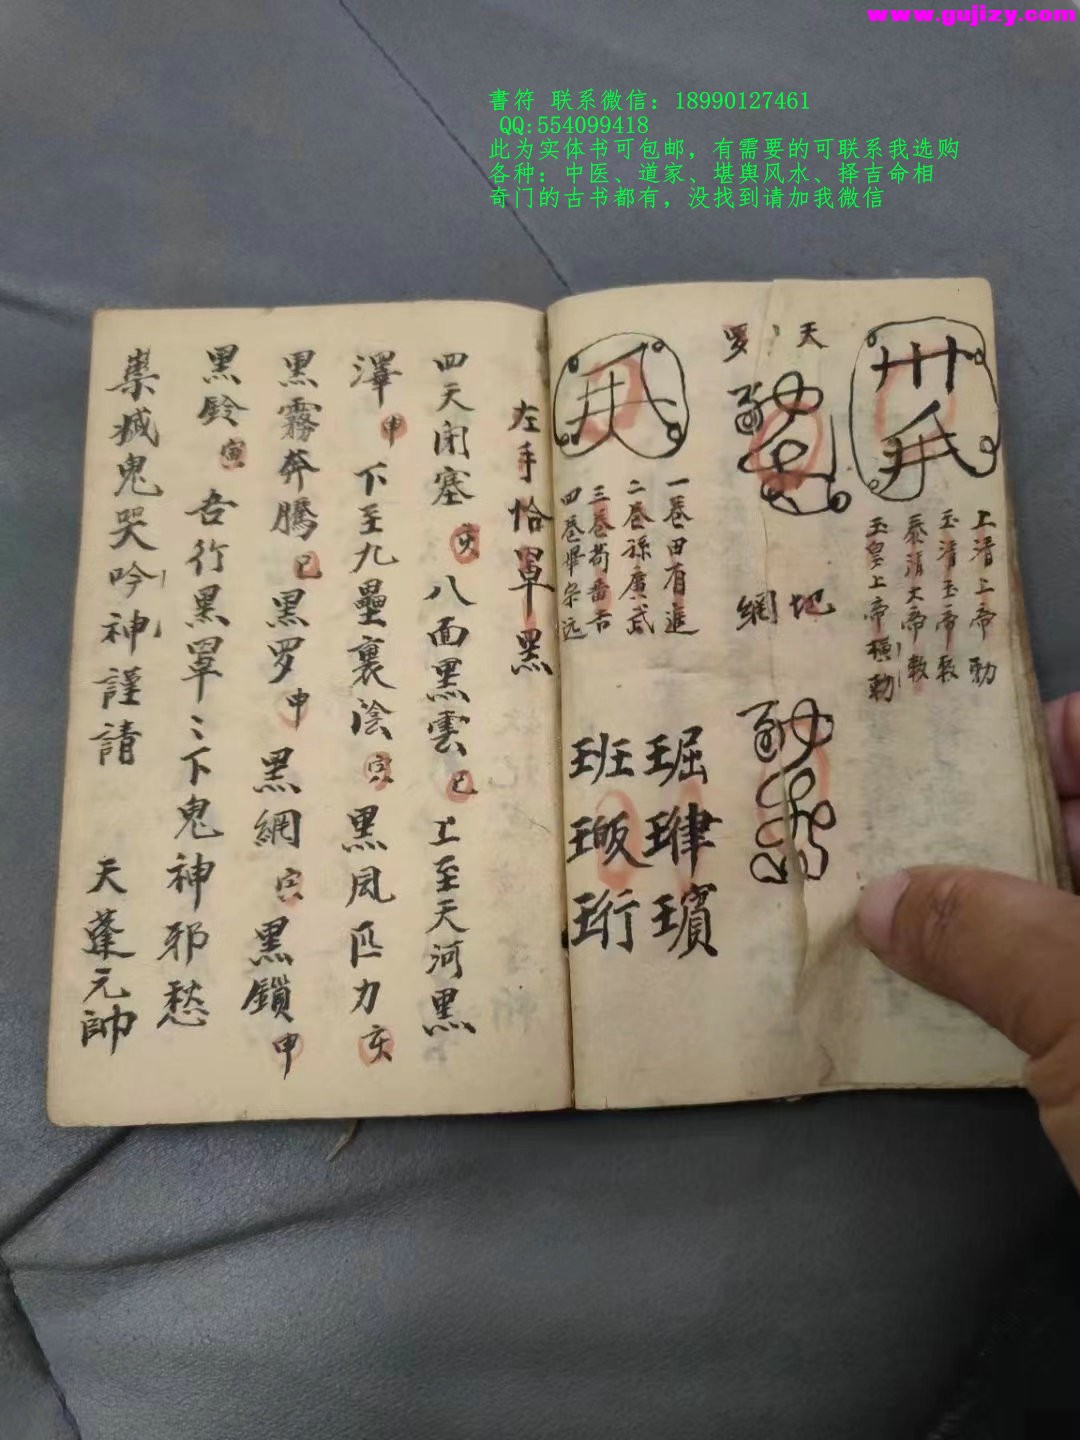 www.gujizy.com
書符 联系微信：18990127461
QQ:554099418
此为实体书可包邮，有需要的可联系我选购
各种：中医、道家、堪舆风水、择吉命相
奇门的古书都有，没找到请加我微信
上清上帝勅
玉清玉帝敕
泰清大帝敕
玉皇上帝 勅
天罗
地網
一卷田有進
二卷孫廣武
三卷苟番吉
四卷畢宗远
左手恰罩黑
四天闭塞亥 八面黑雲巳 上至天河黑
澤申 下至九壘裏陰寅 黑风匹力亥
黑霧奔騰巳 黑罗申 黑網寅 黑鎖申
黑鈴寅 吾行黑罩〻下鬼神邪愁
鬼哭吟神謹請 天蓬元帥